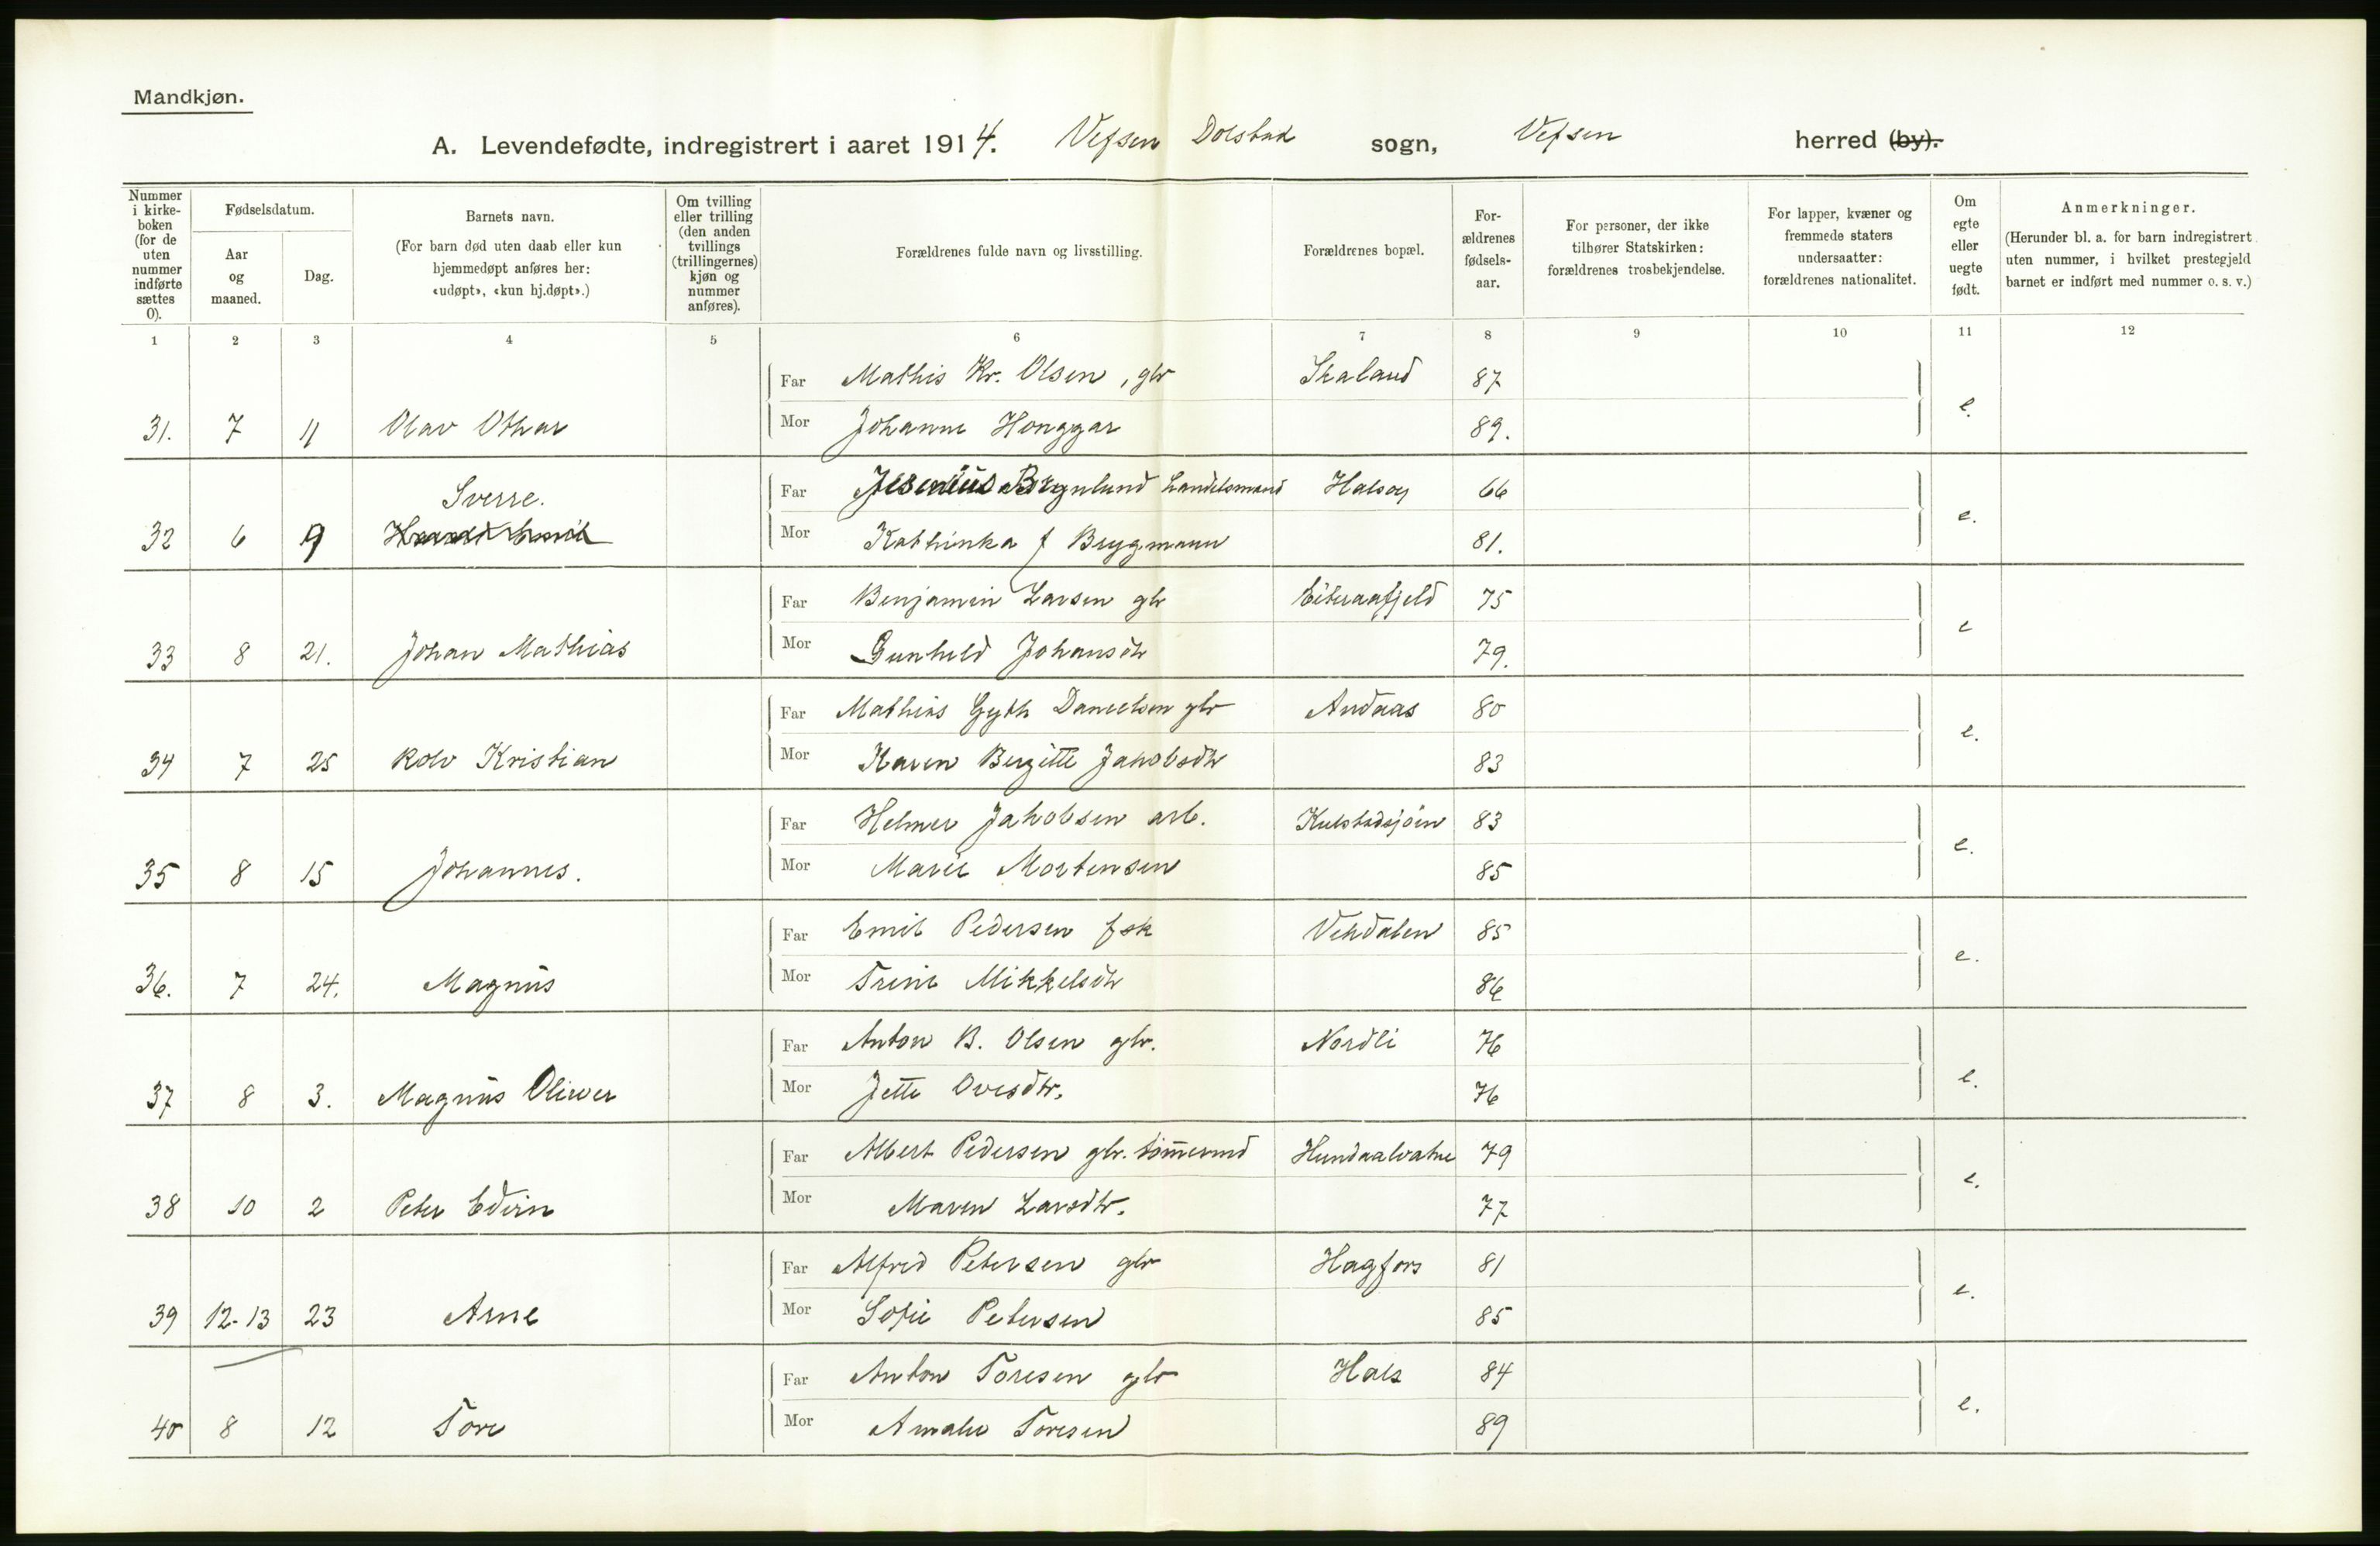 Mandkjøn.
A. Levendefødte, indregistrert i aaret 1914. Vefsen Dolstad sogn, Vefsen herred (by).
Nummer i kirke-boken (for de uten nummer indførte sættes 0).
Fødselsdatum.
Aar og maaned.
Dag.
Barnets navn.
(For barn død uten daab eller kun hjemmedøpt anføres her: «udøpt», «kun hj.døpt».)
Om tvilling eller trilling (den anden tvillings (trillingernes) kjøn og nummer anføres).
Forældrenes fulde navn og livsstilling.
Forældrenes bopæl.
For-ældrenes fødsels-aar.
For personer, der ikke tilhører Statskirken: forældrenes trosbekjendelse.
For lapper, kvæner og fremmede staters undersaatter: forældrenes nationalitet.
Om egte eller uegte født.
Anmerkninger.
(Herunder bl. a. for barn indregistrert uten nummer, i hvilket prestegjeld barnet er indført med nummer o. s. v.)
1 2 3 4 5 6 7 8 9 10 11 12
Far Mathis Kr. Olsen, gbr Skaland 87
31. 7 11 Olav Othar Mor Johanne Honggar 89. e.
Sverre. Far Brynlund Landelsmand Halsøy 66
32 6 9 Mor Kathinka f Brygmann 81. e.
Far Benjamin Larsen gbr Eiteraafjeld 75
33 8 21. Johan Mathias Mor Gunhild Johansdtr 79. e
Far Mathias Gyth Danielsen gbr Andaas 80
34 7 25 Rolv Kristian Mor Karen Bergitte Jakobsdtr 83 e.
Far Helmer Jakobsen arb. Kulstadsjøen 83
35 8 15 Johannes. Mor Marie Mortensen 85 e.
Far Emil Pedersen fsk Vehdalen 85
36. 7 24. Magnus Mor Trine Mikkelsdtr 86 e.
Far Anton B. Olsen gbr. Nordli 76
37 8 3. Magnus Oliver Mor Jette Ovesdtr. 76 e.
Far Albert Pedersen gbr. tømermd Hundaalvatne 79
38 10 2 Peter Edvin Mor Maren Larsdtr. 77 e.
Far Alfred Petersen gbr Hagfors 81
39 12-13 23 Arne Mor Sofie Petersen 85 e.
Far Anton Toresen gbr Hals 84
40 8 12 Tore Mor Amalie Toresen 89 e.